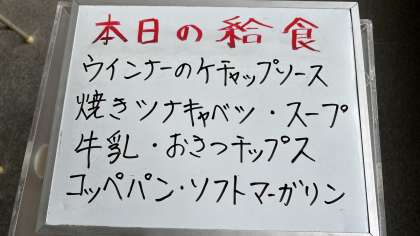 本日の給食
ウインナーのケチャップソース
焼きツナキャベツ・スープ
牛乳・おさつチップス
コッペパン・ソフトマーガリン